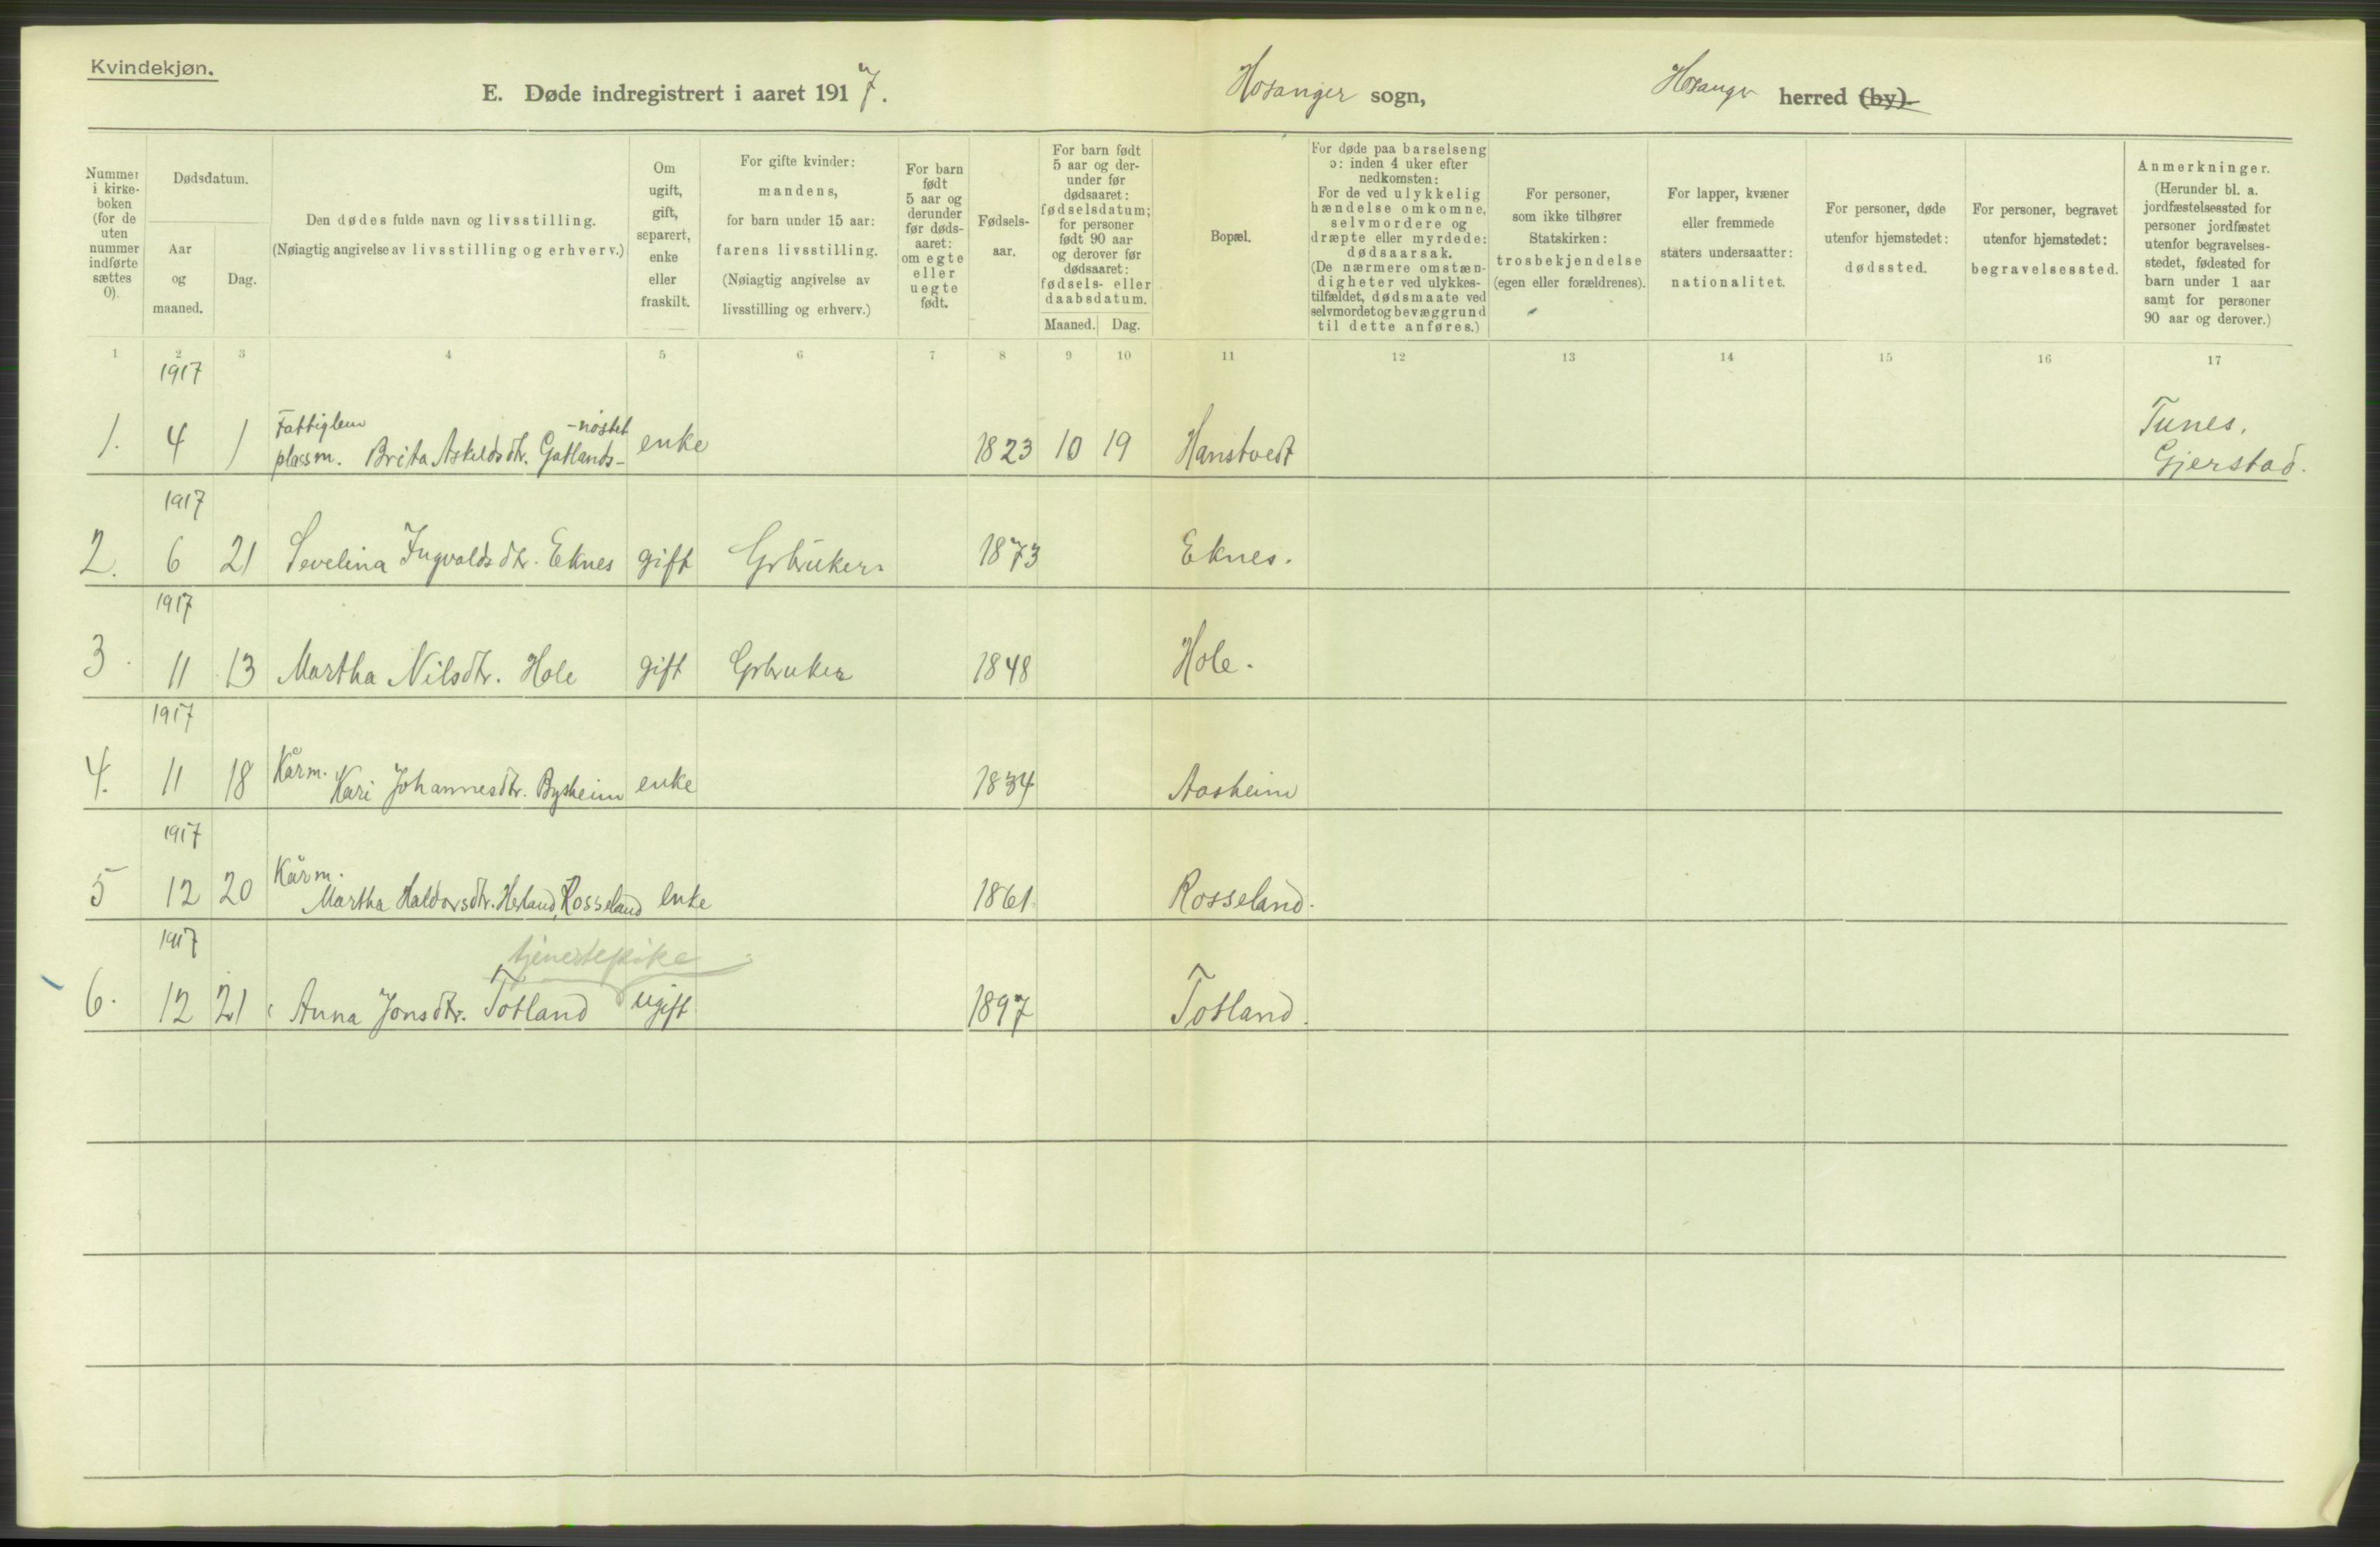 Kvindekjøn.
E. Døde indregistrert i aaret 1917. Hosanger sogn, Hosanger herred (by).
Nummer i kirkeboken (for de uten nummer indførte sættes 0).
Dødsdatum.
Aar og maaned.
Dag.
Den dødes fulde navn og livsstilling.
(Nøiagtig angivelse av livsstilling og erhverv.)
Om ugift, gift, separert, enke eller fraskilt.
For gifte kvinder: mandens, for barn under 15 aar: farens livsstilling. (Nøiagtig angivelse av livsstilling og erhverv.)
For barn født 5 aar og derunder før dødsaaret: om egte eller uegte født.
Fødselsaar.
For barn født 5 aar og derunder før dødsaaret: fødselsdatum; for personer født 90 aar og derover før dødsaaret: fødsels- eller daabsdatum.
Maaned. Dag.
Bopæl.
For døde paa barselseng ɔ: inden 4 uker efter nedkomsten: For de ved ulykkelig hændelse omkomne, selvmordere og dræpte eller myrdede: dødsaarsak. (De nærmere omstændigheter ved ulykkestilfældet, dødsmaate ved selvmordet og bevæggrund til dette anføres.)
For personer, som ikke tilhører Statskirken: trosbekjendelse (egen eller forældrenes).
For lapper, kvæner eller fremmede staters undersaatter: nationalitet.
For personer, døde utenfor hjemstedet: dødssted.
For personer, begravet utenfor hjemstedet: begravelsessted.
Anmerkninger. (Herunder bl. a. jordfæstelsessted for personer jordfæstet utenfor begravelsesstedet, fødested for barn under 1 aar samt for personer 90 aar og derover.)
1 2 3 4 5 6 7 8 9 10 11 12 13 14 15 16 17
1917
1. 4 1 Fattiglem plassm. Brita Askeldsdtr. Gatlands-nøstet enke 1823 10 19 Hanstvedt Tunes, Gjerstad.
1917
2. 6 21 Sevelina Ingvaldsdtr. Eknes gift Gbruker 1873 Eknes.
1917
3. 11 13 Martha Nilsdtr. Hole gift Gbruker 1848 Hole.
1917
4. 11 18 Kårm. Kari Johannesdtr. Bysheim enke 1834 Aasheim
1917
5 12 20 Kårm. Martha Haldorsdtr. Herland, Rosseland enke 1861 Rosseland.
1917 tjenestepike
6. 12 21 Anna Jonsdtr. Totland ugift 1897 Totland.